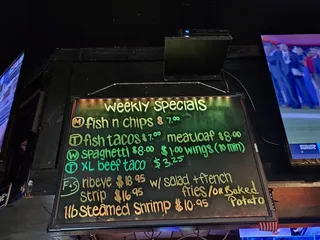 weekly specials
M fish n chips $7.00
T fish tacos $7.00 meatloaf $8.00
W spaghetti $8.00 $1.00 wings (10 min)
T XL beef taco $3.25
F-S ribeye $18.95 w/ salad + french
strip $16.95 fries/or Baked
Potato
1lb steamed shrimp $10.95